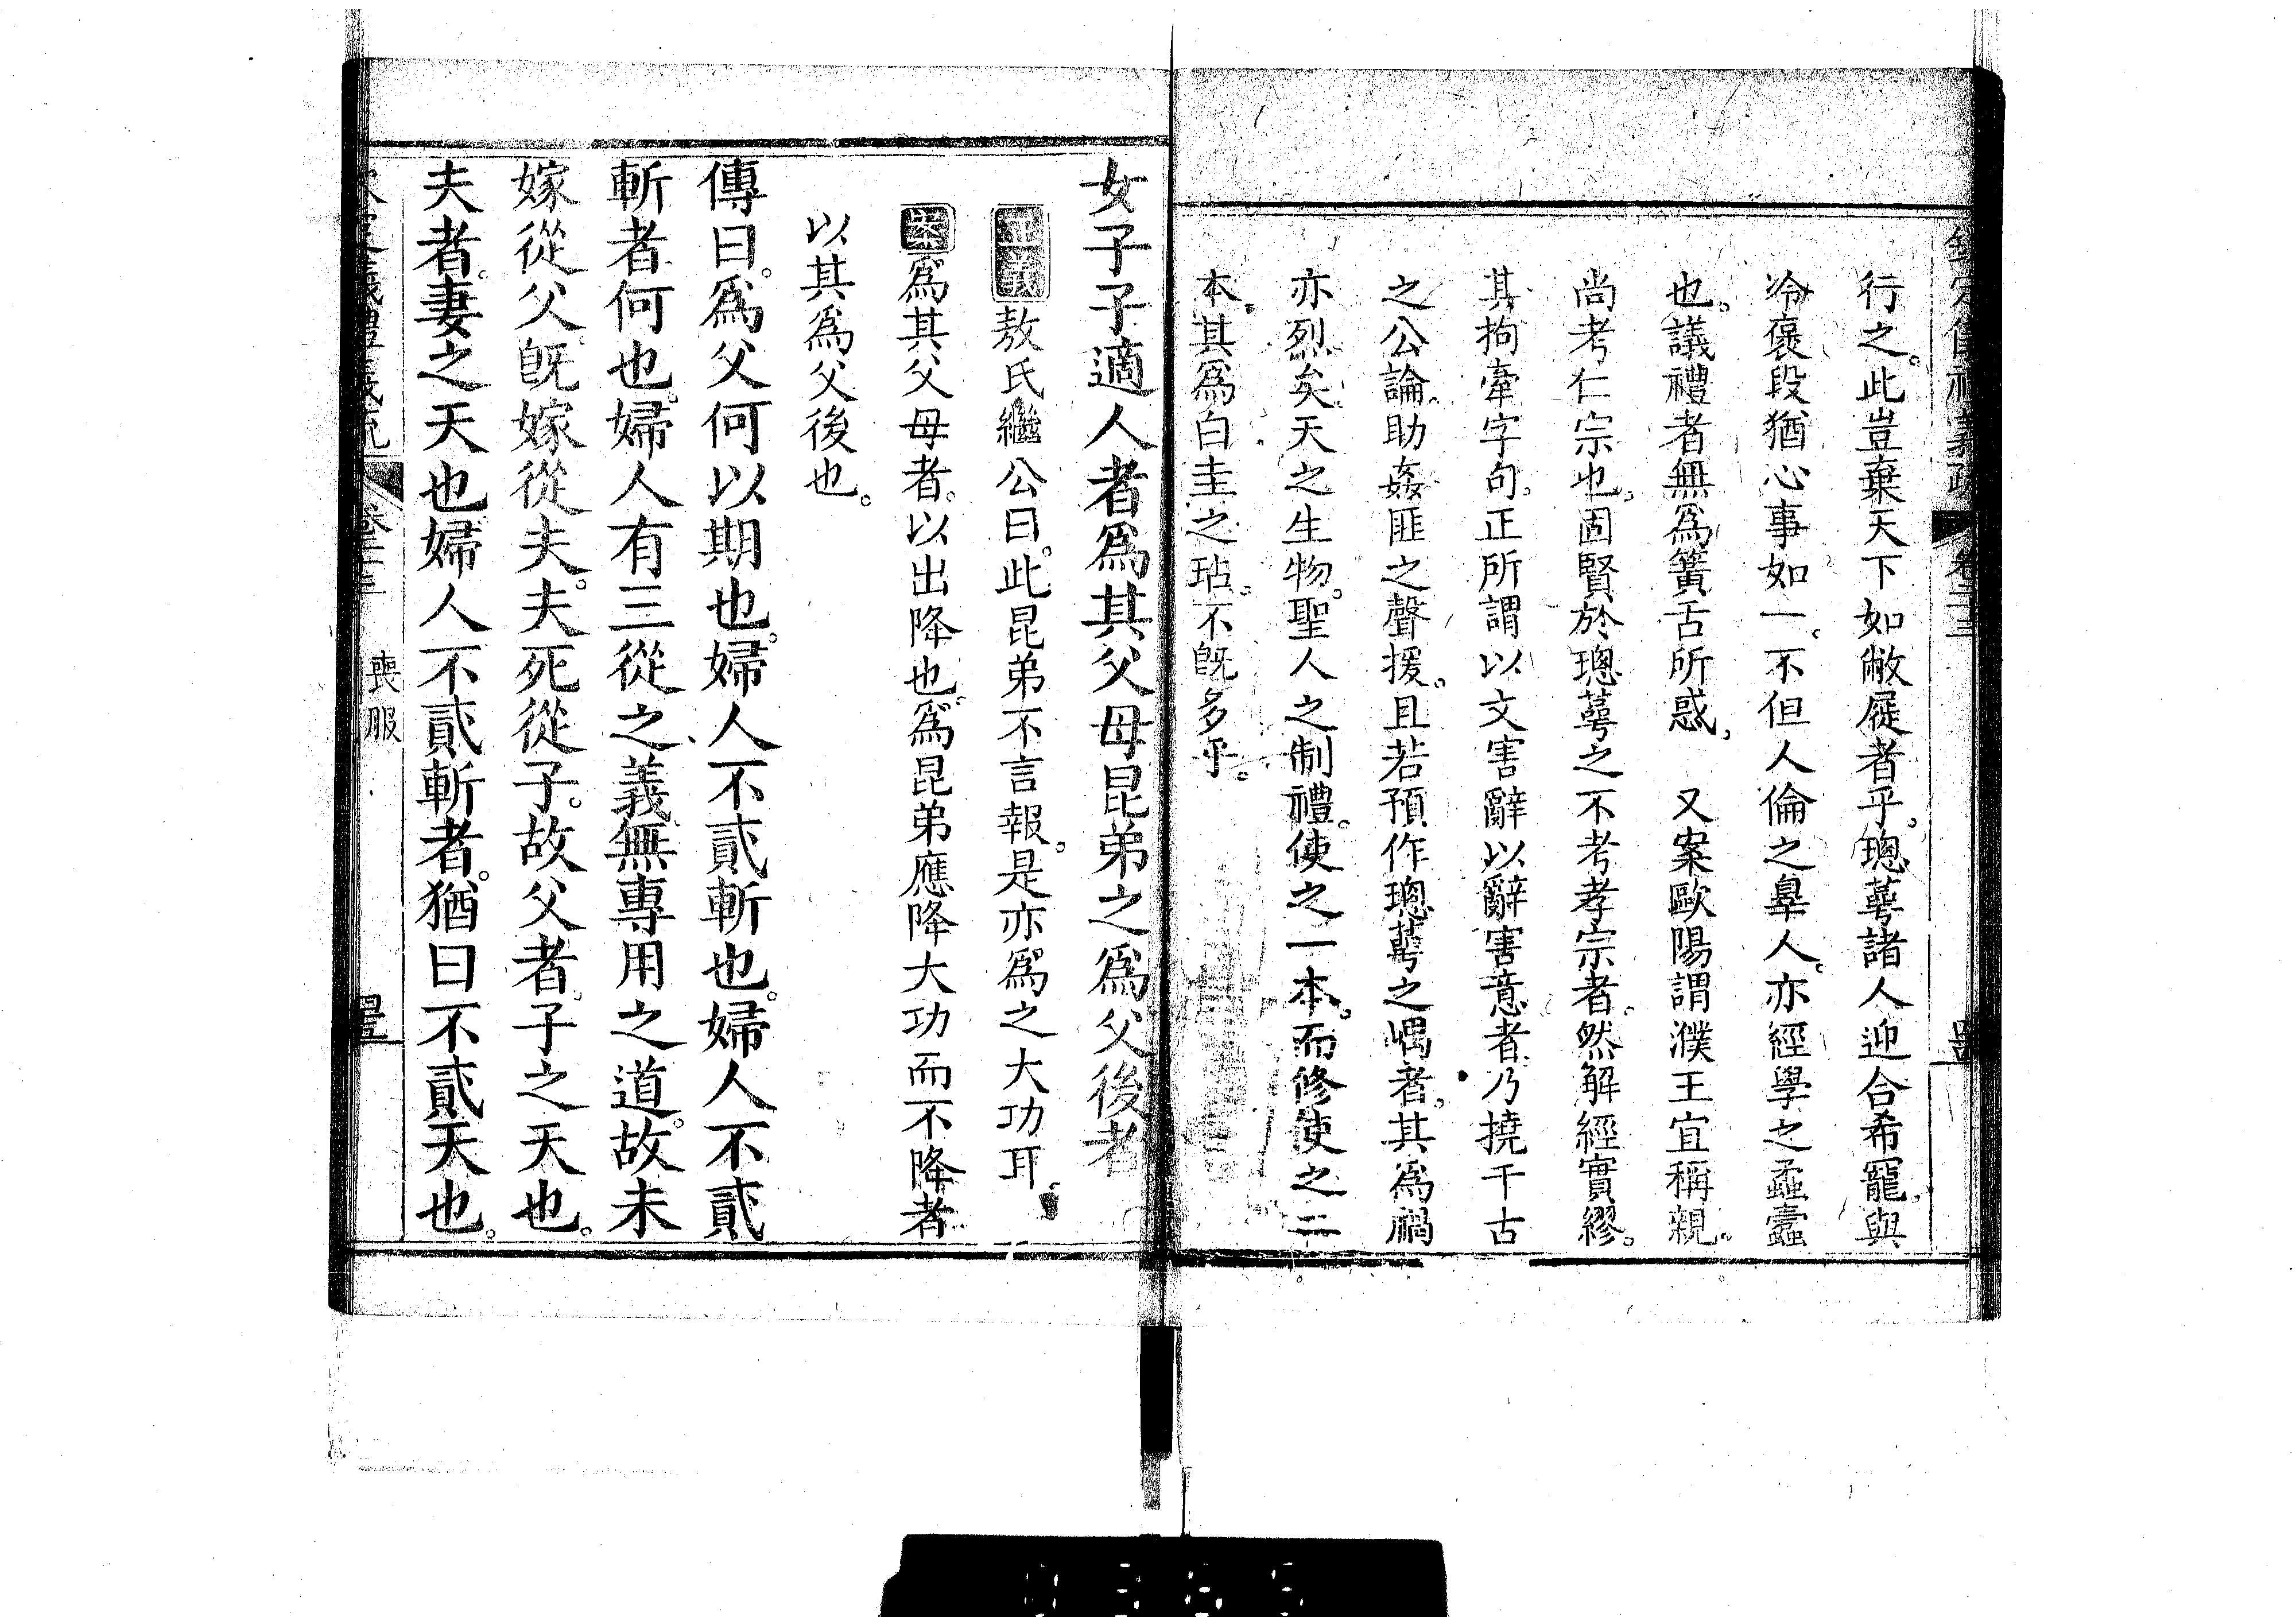 欽定儀禮義疏 卷二十三 四十四
行之。此豈棄天下如敝屣者乎。璁萼諸人迎合希寵。與
冷褒段猶心事如一。不但人倫之辠人。亦經學之蟊蠹
也。議禮者無為簧舌所惑。 又案歐陽謂濮王宜稱親。
尚考仁宗也。固賢於璁萼之不考孝宗者。然解經實繆。
其拘牽字句。正所謂以文害辭以辭害意者。乃撓千古
之公論。助姦匪之聲援。且若預作璁萼之嵎者。其為禍
亦烈矣。天之生物。聖人之制禮。使之一本。而修使之二
本。其為白圭之玷。不旣多乎。
女子子適人者為其父母昆弟之為父後者
正義 敖氏繼公曰。此昆弟不言報。是亦為之大功耳。
案 為其父母者。以出降也。為昆弟應降大功而不降者
以其為父後也。
傳曰。為父何以期也。婦人不貳斬也。婦人不貳
斬者何也。婦人有三從之義。無專用之道。故未
嫁從父。旣嫁從夫。夫死從子。故父者。子之天也。
夫者。妻之天也。婦人不貳斬者。猶曰不貳天也。
欽定儀禮義疏 卷二十三 喪服 四十五